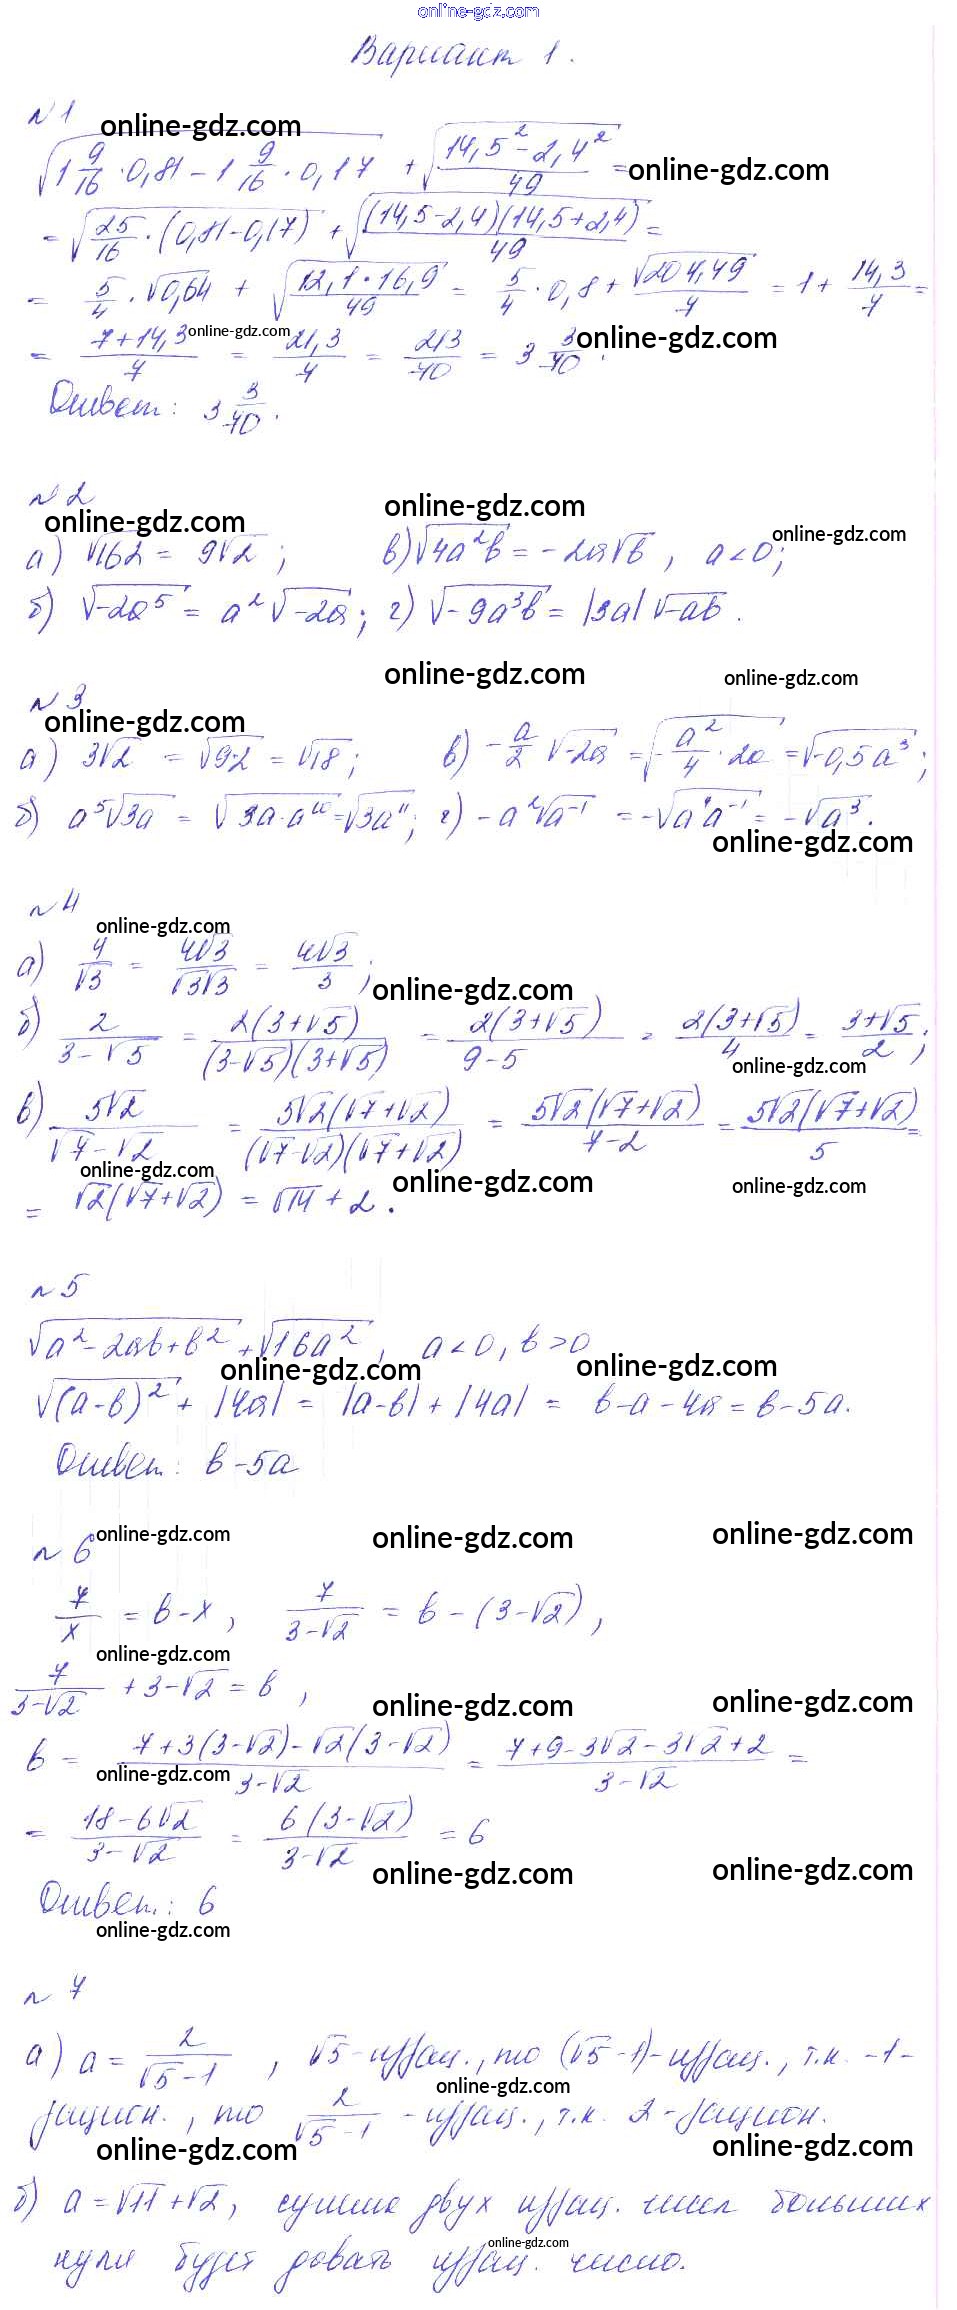 online-gdz.com
Вариант 1.
№1
online-gdz.com
√(1 9/16 · 0,81 - 1 9/16 · 0,17) + √((14,5² - 2,4²)/49) =
online-gdz.com
= √(25/16 · (0,81-0,17)) + √((14,5-2,4)(14,5+2,4)/49) =
= 5/4 · √0,64 + √(12,1·16,9/49) = 5/4 · 0,8 + √204,49/7 = 1 + 14,3/7 =
= (7+14,3)/7 = 21,3/7 = 213/70 = 3 3/70.
online-gdz.com online-gdz.com
Ответ: 3 3/70.
№2
online-gdz.com online-gdz.com online-gdz.com
а) √162 = 9√2; в) √4a²b = -2a√b, a<0;
б) √-2a⁵ = a²√-2a; г) √-9a³b = |3a|√-ab.
online-gdz.com online-gdz.com
№3
online-gdz.com
а) 3√2 = √9·2 = √18; в) -a/2 √-2a = √(-a²/4 · 2a) = √-0,5a³;
б) a⁵√3a = √3a·a¹⁰ = √3a¹¹; г) -a²√a⁻¹ = -√a⁴a⁻¹ = -√a³.
online-gdz.com
№4
online-gdz.com
а) 4/√3 = 4√3/√3√3 = 4√3/3;
online-gdz.com
б) 2/(3-√5) = 2(3+√5)/((3-√5)(3+√5)) = 2(3+√5)/(9-5) = 2(3+√5)/4 = (3+√5)/2;
online-gdz.com
в) 5√2/(√7-√2) = 5√2(√7+√2)/((√7-√2)(√7+√2)) = 5√2(√7+√2)/(7-2) = 5√2(√7+√2)/5 =
online-gdz.com online-gdz.com online-gdz.com
= √2(√7+√2) = √14 + 2.
№5
√(a²-2ab+b²) + √16a², a<0, b>0
online-gdz.com online-gdz.com
√(a-b)² + |4a| = |a-b| + |4a| = b-a-4a = b-5a.
Ответ: b-5a
№6
online-gdz.com online-gdz.com online-gdz.com
7/x = b-x, 7/(3-√2) = b-(3-√2),
online-gdz.com
7/(3-√2) + 3-√2 = b,
online-gdz.com online-gdz.com
b = (7+3(3-√2)-√2(3-√2))/(3-√2) = (7+9-3√2-3√2+2)/(3-√2) =
online-gdz.com
= (18-6√2)/(3-√2) = 6(3-√2)/(3-√2) = 6
online-gdz.com online-gdz.com
Ответ: 6
online-gdz.com
№7
а) a = 2/(√5-1), √5-иррац., то (√5-1)-иррац., т.к. -1-
online-gdz.com
рацион., то 2/(√5-1) - иррац., т.к. 2-рацион.
online-gdz.com online-gdz.com
б) a=√11+√2, сумма двух иррац. чисел больших
online-gdz.com
нуля будет давать иррац. число.